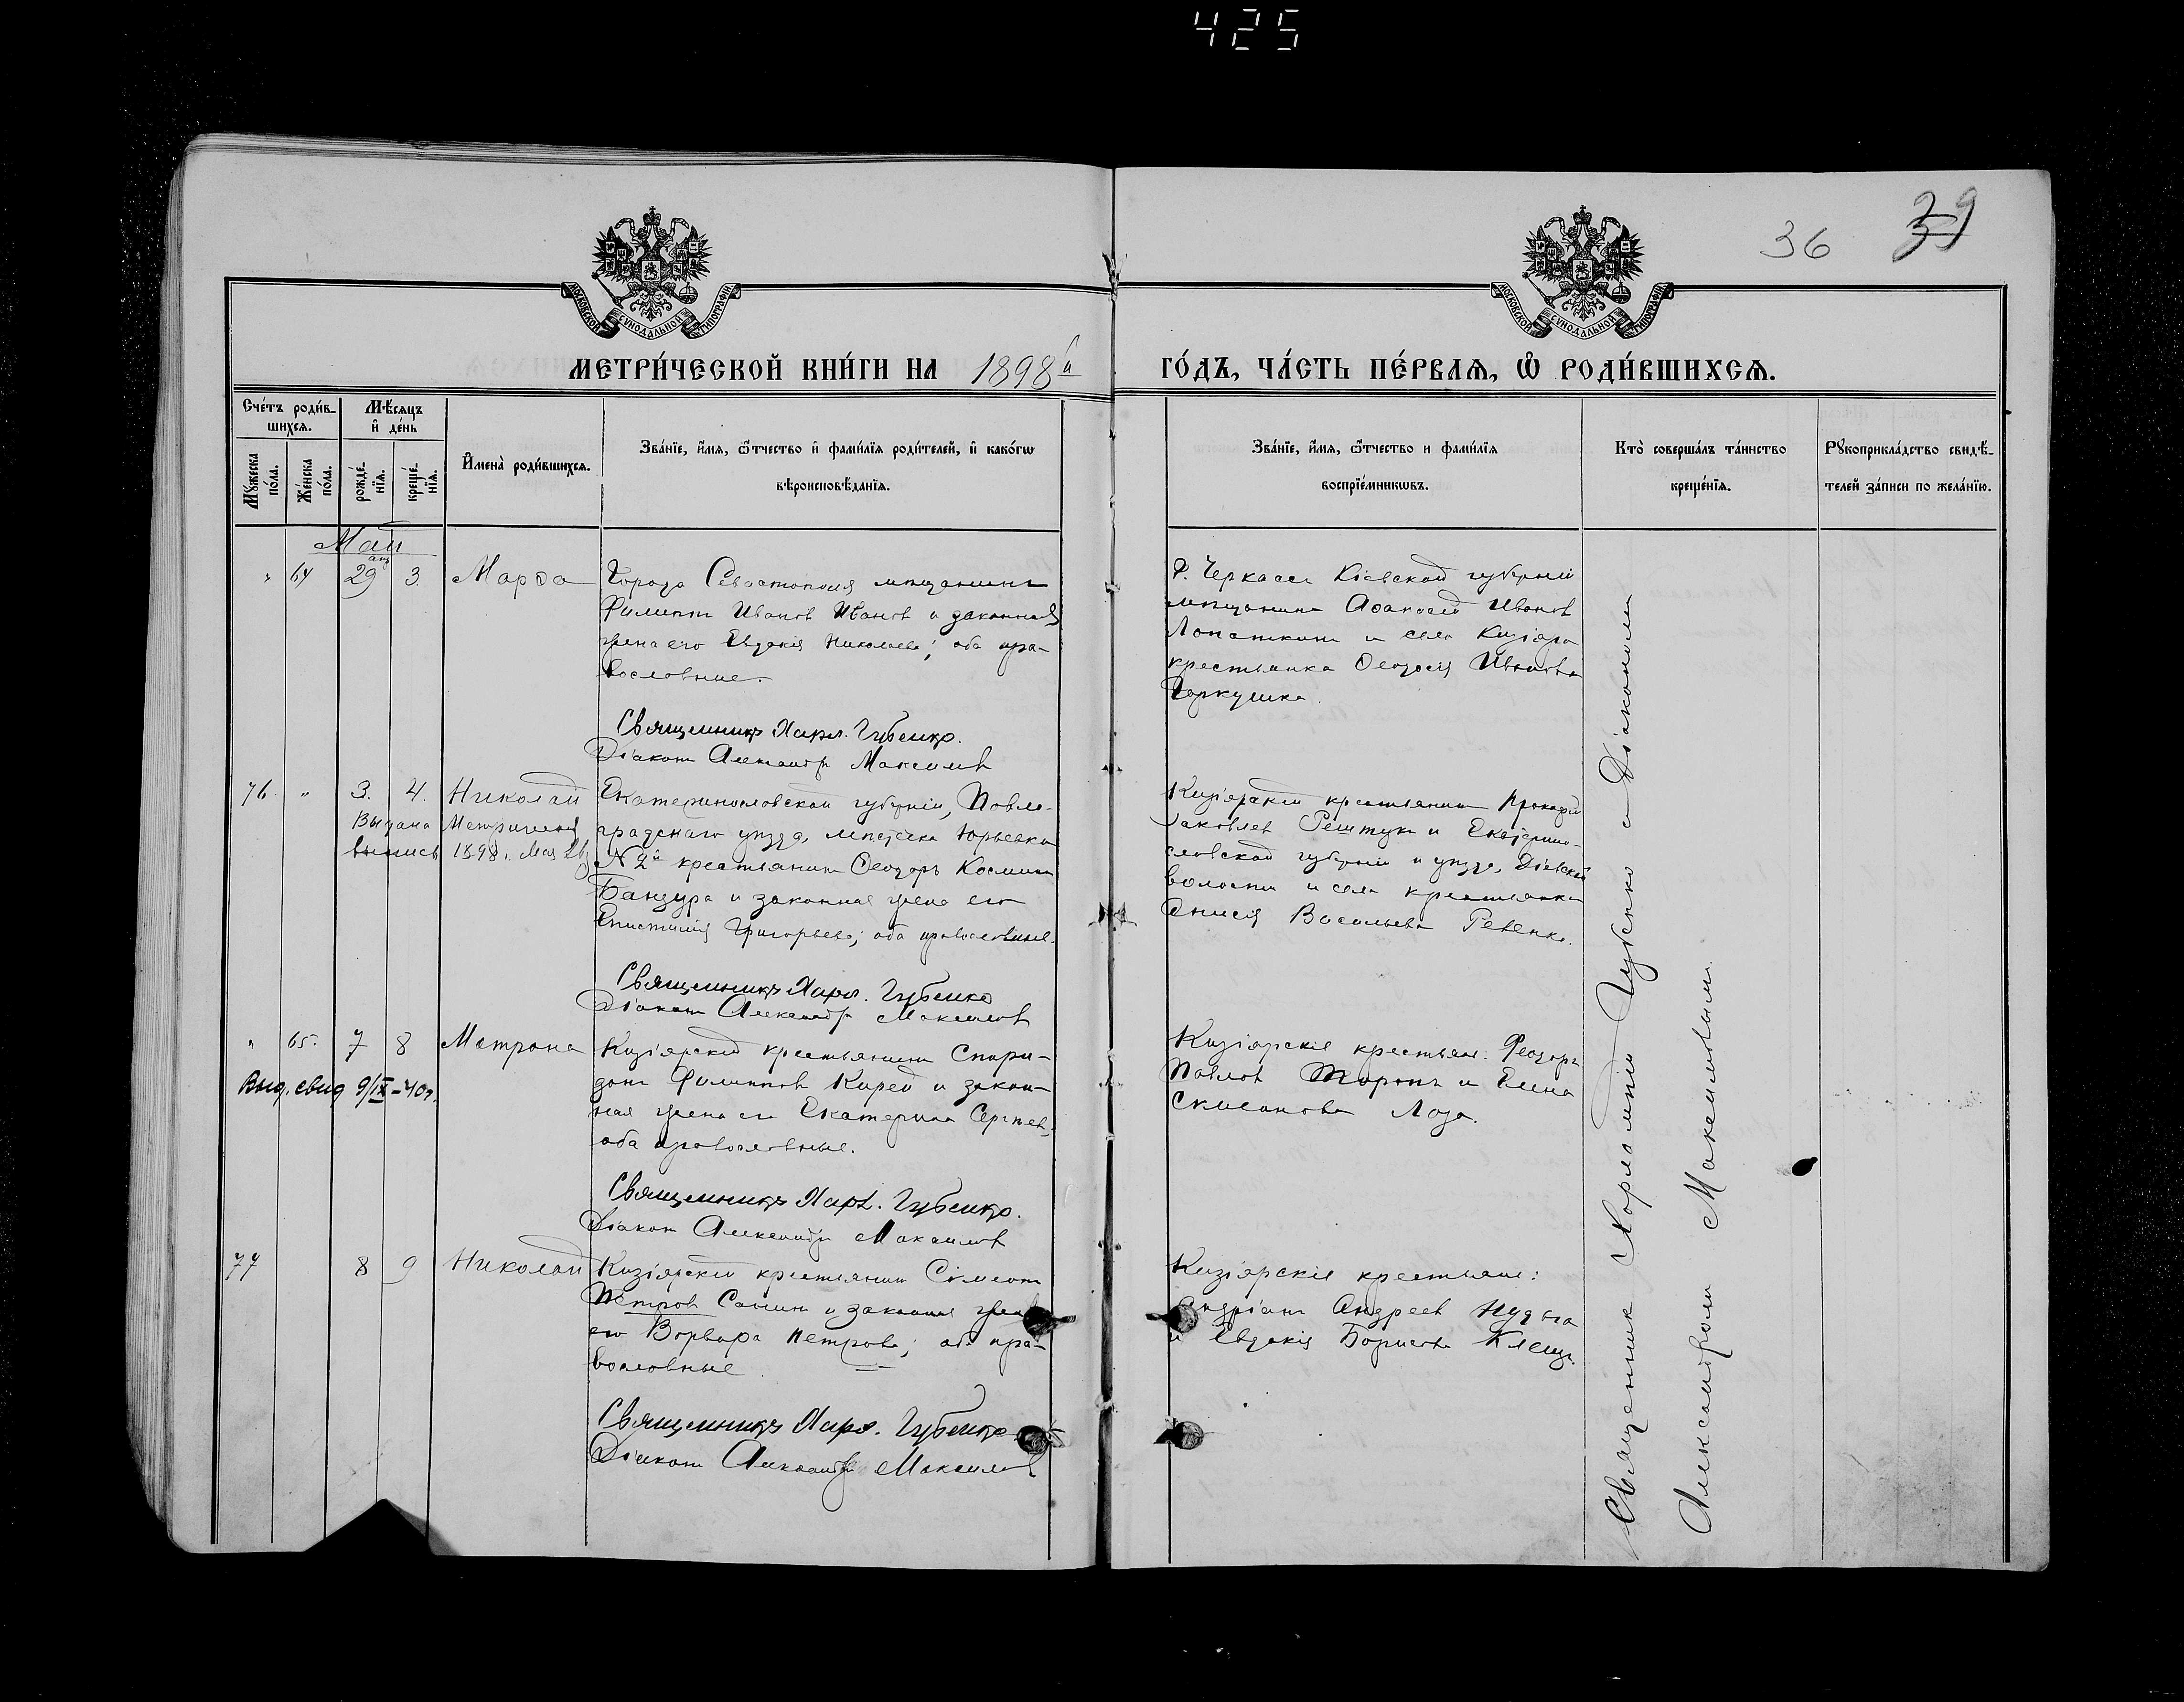 425
36
39
МОСКОВСКОЙ СѴНОДАЛЬНОЙ ТИПОГРАФІИ
МОСКОВСКОЙ СѴНОДАЛЬНОЙ ТИПОГРАФІИ
МЕТРИ́ЧЕСКОЙ КНИ́ГИ НА 1898й ГО́ДЪ, ЧА́СТЬ ПЕ́РВАѦ, Ѿ РОДИ́ВШИХСѦ.
Сче́тъ роди́в-
шихсѧ.
Мѣ́сѧцъ
и҆ де́нь
Мꙋ́жеска
по́ла.
Же́нска
по́ла.
рожде́-
нїѧ.
креще́-
нїѧ.
И҆мена̀ роди́вшихсѧ.
Зва́нїе, и҆́мѧ, ѻ҆́тчество и҆ фами́лїѧ роди́телей, и҆ како́гѡ
вѣроисповѣ́данїѧ.
Зва́нїе, и҆́мѧ, ѻ҆́тчество и фами́лїѧ
воспрїе́мникѡвъ.
Кто̀ соверша́лъ та́инство
креще́нїѧ.
Рꙋкоприкла́дство свидѣ́-
телей за́писи по жела́нїю.
Май
" 64 29 апр 3. Марѳа
Города Севастополя мѣщанинъ
Филиппъ Ивановъ Ивановъ и законная
жена его Евдокія Николаева; оба пра-
вославные.
Священникъ Харл. Губенко.
Діаконъ Александръ Максимовъ
Г. Черкассъ Кіевской губерніи
мѣщанинъ Аѳанасій Ивановъ
Лопаткинъ и села Кизіяра
крестьянка Ѳеодосія Иванова
Горкушка.
76 " 3. 4. Николай
Выдана Метрическая
выпись 1898 г. Мая
Екатеринославской губерніи, Павло-
градскаго уѣзда, мѣстечка Юрьевки
N 2й крестьянинъ Ѳеодоръ Косминъ
Бандура и законная жена его
Епистимія Григорьева; оба православные.
Священникъ Харл. Губенко
Діаконъ Александръ Максимовъ
Кизіярскій крестьянинъ Прокофій
Яковлевъ Рештукъ и Екатерино-
славской губерніи и уѣзда, Діевской
волости и села крестьянка
Анисія Васильева Ревенко.
" 65. 7 8 Матрона
Выд. свид 9/IX-40г.
Кизіярскій крестьянинъ Спири-
донъ Филипповъ Кирей и закон-
ная жена его Екатерина Сергѣева,
оба православные.
Священникъ Харл. Губенко.
Діаконъ Александръ Максимовъ
Кизіярскіе крестьяне: Ѳеодоръ
Павловъ Таранъ и Елена
Лоза.
77 8 9 Николай
Кизіярскій крестьянинъ Сѵмеонъ
Петровъ Санинъ и законная жена
его Варвара Петрова; оба пра-
вославные
Священникъ Харл. Губенко
Діаконъ Александръ Максимовъ
Кизіярскіе крестьяне:
Андріанъ Андреевъ Нудьга
и Евдокія Борисова Клещъ.
Священникъ Харлампій Губенко с Діакономъ
Александромъ Максимовымъ.